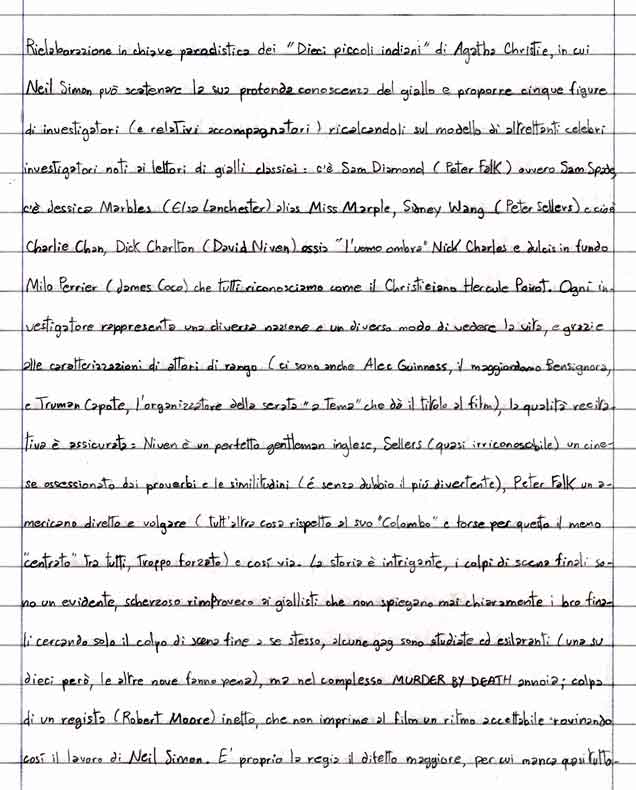 Rielaborazione in chiave parodistica dei "Dieci piccoli indiani" di Agatha Christie, in cui
Neil Simon può scatenare la sua profonda conoscenza del giallo e proporre cinque figure
di investigatori (e relativi accompagnatori) ricalcandoli sul modello di altrettanti celebri
investigatori noti ai lettori di gialli classici: c'è Sam Diamond (Peter Falk) ovvero Sam Spade,
c'è Jessica Marbles (Elsa Lanchester) alias Miss Marple, Sidney Wang (Peter Sellers) e cioè
Charlie Chan, Dick Charlton (David Niven) ossia "l'uomo ombra" Nick Charles e dulcis in fundo
Milo Perrier (James Coco) che tutti riconosciamo come il Christieiano Hercule Poirot. Ogni in-
vestigatore rappresenta una diversa nazione e un diverso modo di vedere la vita, e grazie
alle caratterizzazioni di attori di rango (ci sono anche Alec Guinness, il maggiordomo Bensignora,
e Truman Capote, l'organizzatore della serata "a tema" che dà il titolo al film), la qualità recita-
tiva è assicurata: Niven è un perfetto gentleman inglese, Sellers (quasi irriconoscibile) un cine-
se ossessionato dai proverbi e le similitudini (é senza dubbio il più divertente), Peter Falk un a-
mericano diretto e volgare (tutt'altra cosa rispetto al suo "Colombo" e forse per questo il meno
"centrato" tra tutti, troppo forzato) e così via. La storia è intrigante, i colpi di scena finali so-
no un evidente, scherzoso rimprovero ai giallisti che non spiegano mai chiaramente i loro fina-
li cercando solo il colpo di scena fine a se stesso, alcune gag sono studiate ed esilaranti (una su
dieci però, le altre nove fanno pena), ma nel complesso MURDER BY DEATH annoia; colpa
di un regista (Robert Moore) inetto, che non imprime al film un ritmo accettabile rovinando
così il lavoro di Neil Simon. E' proprio la regia il difetto maggiore, per cui manca quasi tutto.